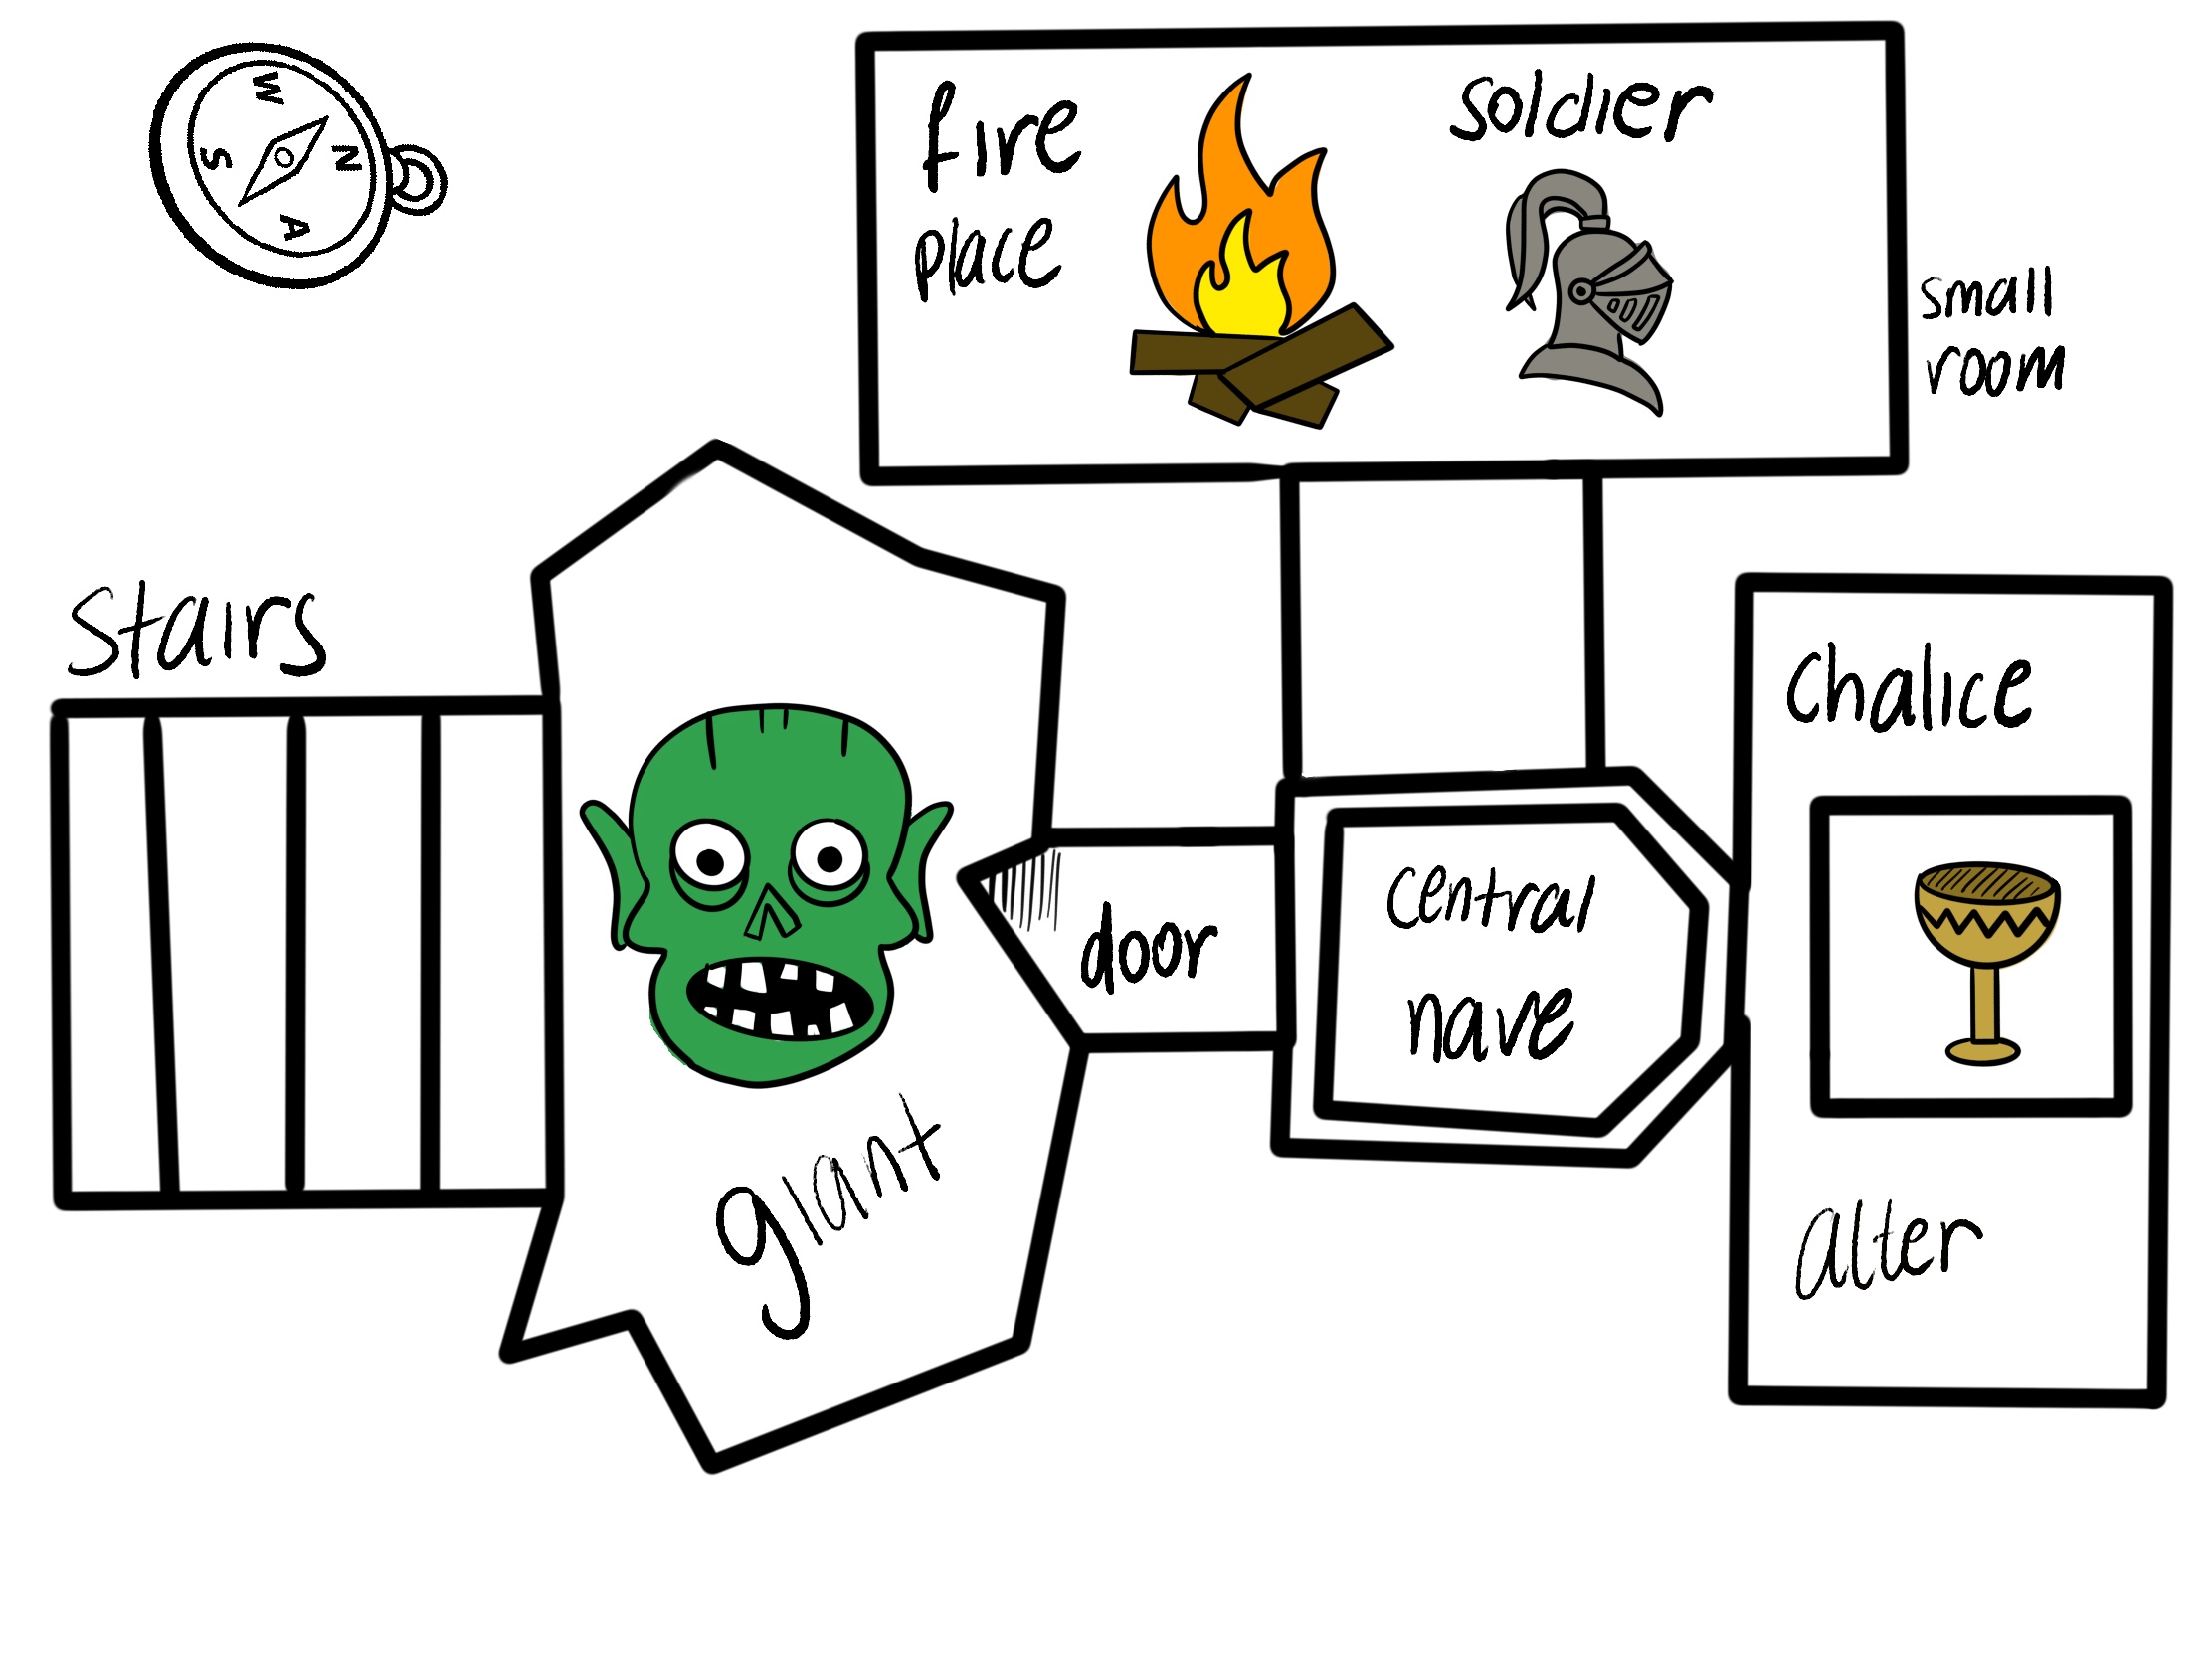 W
N
S
A
fire
place
soldier
small
room
Stairs
giant
door
central
nave
chalice
alter